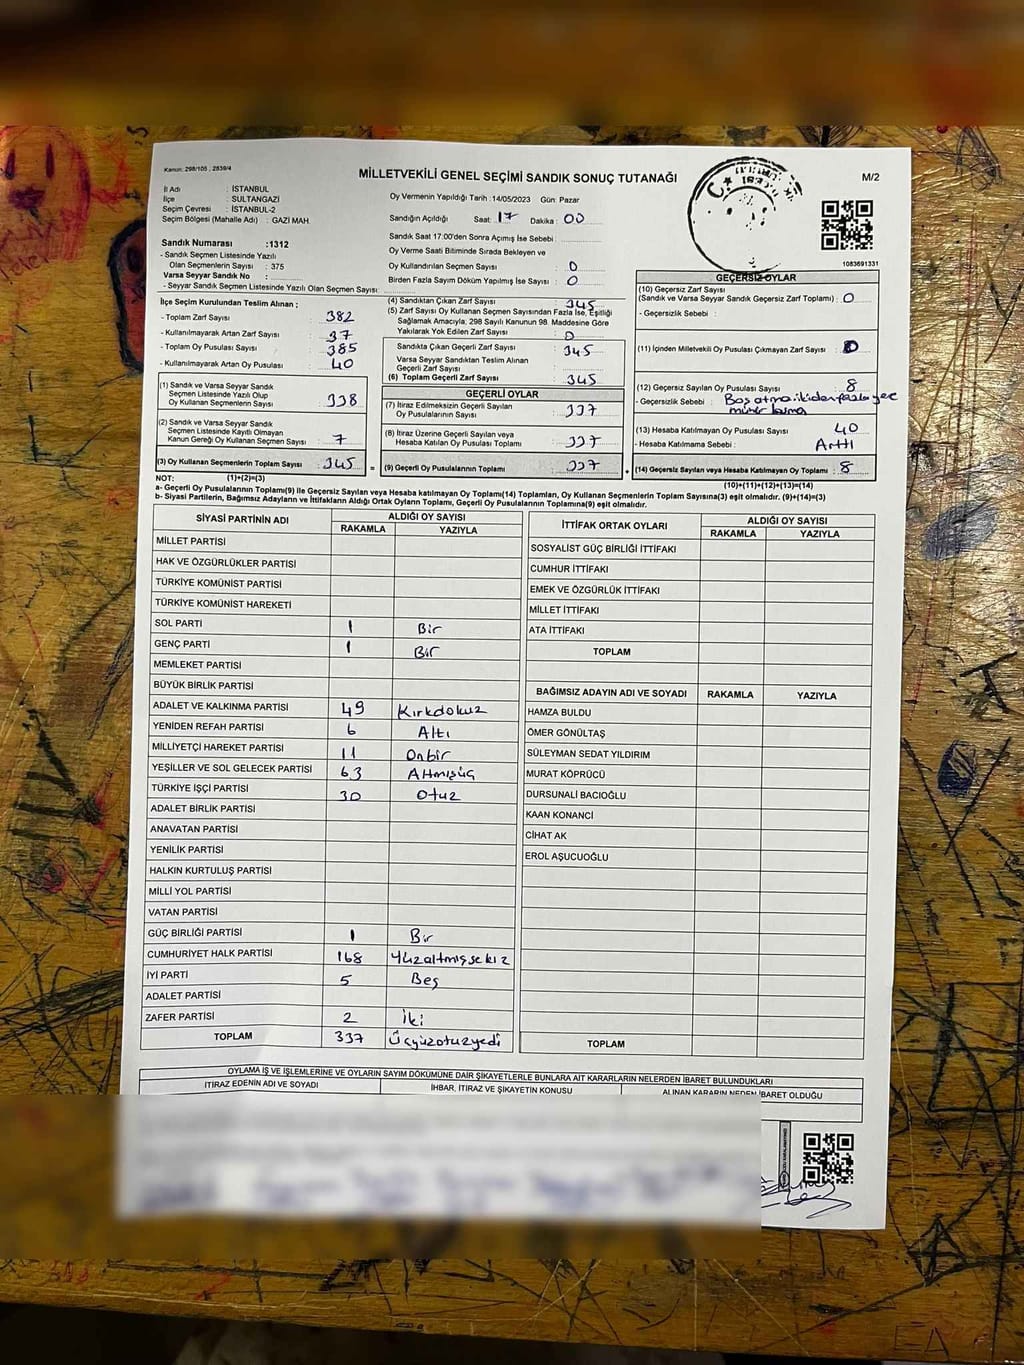 Kanun: 298/105 , 2839/4
MİLLETVEKİLİ GENEL SEÇİMİ SANDIK SONUÇ TUTANAĞI
M/2
İl Adı : İSTANBUL
İlçe : SULTANGAZİ
Seçim Çevresi : İSTANBUL-2
Seçim Bölgesi (Mahalle Adı) : GAZİ MAH.
Oy Vermenin Yapıldığı Tarih : 14/05/2023 Gün: Pazar
Sandığın Açıldığı Saat: 17 Dakika : 00
Sandık Saat 17:00'den Sonra Açımış İse Sebebi :
Oy Verme Saati Bitiminde Sırada Bekleyen ve
Oy Kullandırılan Seçmen Sayısı : 0
Birden Fazla Sayım Döküm Yapılmış İse Sayısı : 0
1083691331
Sandık Numarası :1312
- Sandık Seçmen Listesinde Yazılı
Olan Seçmenlerin Sayısı : 375
Varsa Seyyar Sandık No :
- Seyyar Sandık Seçmen Listesinde Yazılı Olan Seçmen Sayısı:
İlçe Seçim Kurulundan Teslim Alınan :
- Toplam Zarf Sayısı : 382
- Kullanılmayarak Artan Zarf Sayısı : 37
- Toplam Oy Pusulası Sayısı : 385
- Kullanılmayarak Artan Oy Pusulası : 40
(1) Sandık ve Varsa Seyyar Sandık
Seçmen Listesinde Yazılı Olup
Oy Kullanan Seçmenlerin Sayısı : 338
(2) Sandık ve Varsa Seyyar Sandık
Seçmen Listesinde Kayıtlı Olmayan
Kanun Gereği Oy Kullanan Seçmen Sayısı : 7
(3) Oy Kullanan Seçmenlerin Toplam Sayısı : 345
(1)+(2)=(3)
(4) Sandıktan Çıkan Zarf Sayısı : 345
(5) Zarf Sayısı Oy Kullanan Seçmen Sayısından Fazla İse, Eşitliği
Sağlamak Amacıyla, 298 Sayılı Kanunun 98. Maddesine Göre
Yakılarak Yok Edilen Zarf Sayısı : 0
Sandıkta Çıkan Geçerli Zarf Sayısı : 345
Varsa Seyyar Sandıktan Teslim Alınan
Geçerli Zarf Sayısı :
(6) Toplam Geçerli Zarf Sayısı : 345
GEÇERLİ OYLAR
(7) İtiraz Edilmeksizin Geçerli Sayılan
Oy Pusulalarının Sayısı : 337
(8) İtiraz Üzerine Geçerli Sayılan veya
Hesaba Katılan Oy Pusulası Toplamı : 337
= (9) Geçerli Oy Pusulalarının Toplamı : 337
GEÇERSİZ OYLAR
(10) Geçersiz Zarf Sayısı
(Sandık ve Varsa Seyyar Sandık Geçersiz Zarf Toplamı) : 0
- Geçersizlik Sebebi :
(11) İçinden Milletvekili Oy Pusulası Çıkmayan Zarf Sayısı : 0
(12) Geçersiz Sayılan Oy Pusulası Sayısı : 8
- Geçersizlik Sebebi : Boş atma ikiden fazla yere
mühür basma
(13) Hesaba Katılmayan Oy Pusulası Sayısı : 40
- Hesaba Katılmama Sebebi : Arttı
+ (14) Geçersiz Sayılan veya Hesaba Katılmayan Oy Toplamı : 8
(10)+(11)+(12)+(13)=(14)
NOT:
a- Geçerli Oy Pusulalarının Toplamı(9) ile Geçersiz Sayılan veya Hesaba katılmayan Oy Toplamı(14) Toplamları, Oy Kullanan Seçmenlerin Toplam Sayısına(3) eşit olmalıdır. (9)+(14)=(3)
b- Siyasi Partilerin, Bağımsız Adayların ve İttifakların Aldığı Ortak Oyların Toplamı, Geçerli Oy Pusulalarının Toplamına(9) eşit olmalıdır.
SİYASİ PARTİNİN ADI ALDIĞI OY SAYISI
RAKAMLA YAZIYLA
MİLLET PARTİSİ
HAK VE ÖZGÜRLÜKLER PARTİSİ
TÜRKİYE KOMÜNİST PARTİSİ
TÜRKİYE KOMÜNİST HAREKETİ
SOL PARTİ 1 Bir
GENÇ PARTİ 1 Bir
MEMLEKET PARTİSİ
BÜYÜK BİRLİK PARTİSİ
ADALET VE KALKINMA PARTİSİ 49 Kırkdokuz
YENİDEN REFAH PARTİSİ 6 Altı
MİLLİYETÇİ HAREKET PARTİSİ 11 Onbir
YEŞİLLER VE SOL GELECEK PARTİSİ 63 Altmışüç
TÜRKİYE İŞÇİ PARTİSİ 30 Otuz
ADALET BİRLİK PARTİSİ
ANAVATAN PARTİSİ
YENİLİK PARTİSİ
HALKIN KURTULUŞ PARTİSİ
MİLLİ YOL PARTİSİ
VATAN PARTİSİ
GÜÇ BİRLİĞİ PARTİSİ 1 Bir
CUMHURİYET HALK PARTİSİ 168 Yüzaltmışsekiz
İYİ PARTİ 5 Beş
ADALET PARTİSİ
ZAFER PARTİSİ 2 İki
TOPLAM 337 Üçyüzotuzyedi
İTTİFAK ORTAK OYLARI ALDIĞI OY SAYISI
RAKAMLA YAZIYLA
SOSYALİST GÜÇ BİRLİĞİ İTTİFAKI
CUMHUR İTTİFAKI
EMEK VE ÖZGÜRLÜK İTTİFAKI
MİLLET İTTİFAKI
ATA İTTİFAKI
TOPLAM
BAĞIMSIZ ADAYIN ADI VE SOYADI RAKAMLA YAZIYLA
HAMZA BULDU
ÖMER GÖNÜLTAŞ
SÜLEYMAN SEDAT YILDIRIM
MURAT KÖPRÜCÜ
DURSUNALİ BACIOĞLU
KAAN KONANCİ
CİHAT AK
EROL AŞUCUOĞLU
TOPLAM
OYLAMA İŞ VE İŞLEMLERİNE VE OYLARIN SAYIM DÖKÜMÜNE DAİR ŞİKAYETLERLE BUNLARA AİT KARARLARIN NELERDEN İBARET BULUNDUKLARI
İTİRAZ EDENİN ADI VE SOYADI İHBAR, İTİRAZ VE ŞİKAYETİN KONUSU ALINAN KARARIN NEDEN İBARET OLDUĞU